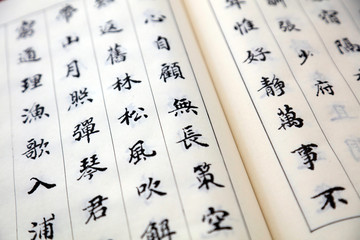 宿隔
張少府
年惟好靜萬事不
心自顧無長策空
返舊林松風吹解
帶山月照彈琴君
窮通理漁歌入浦